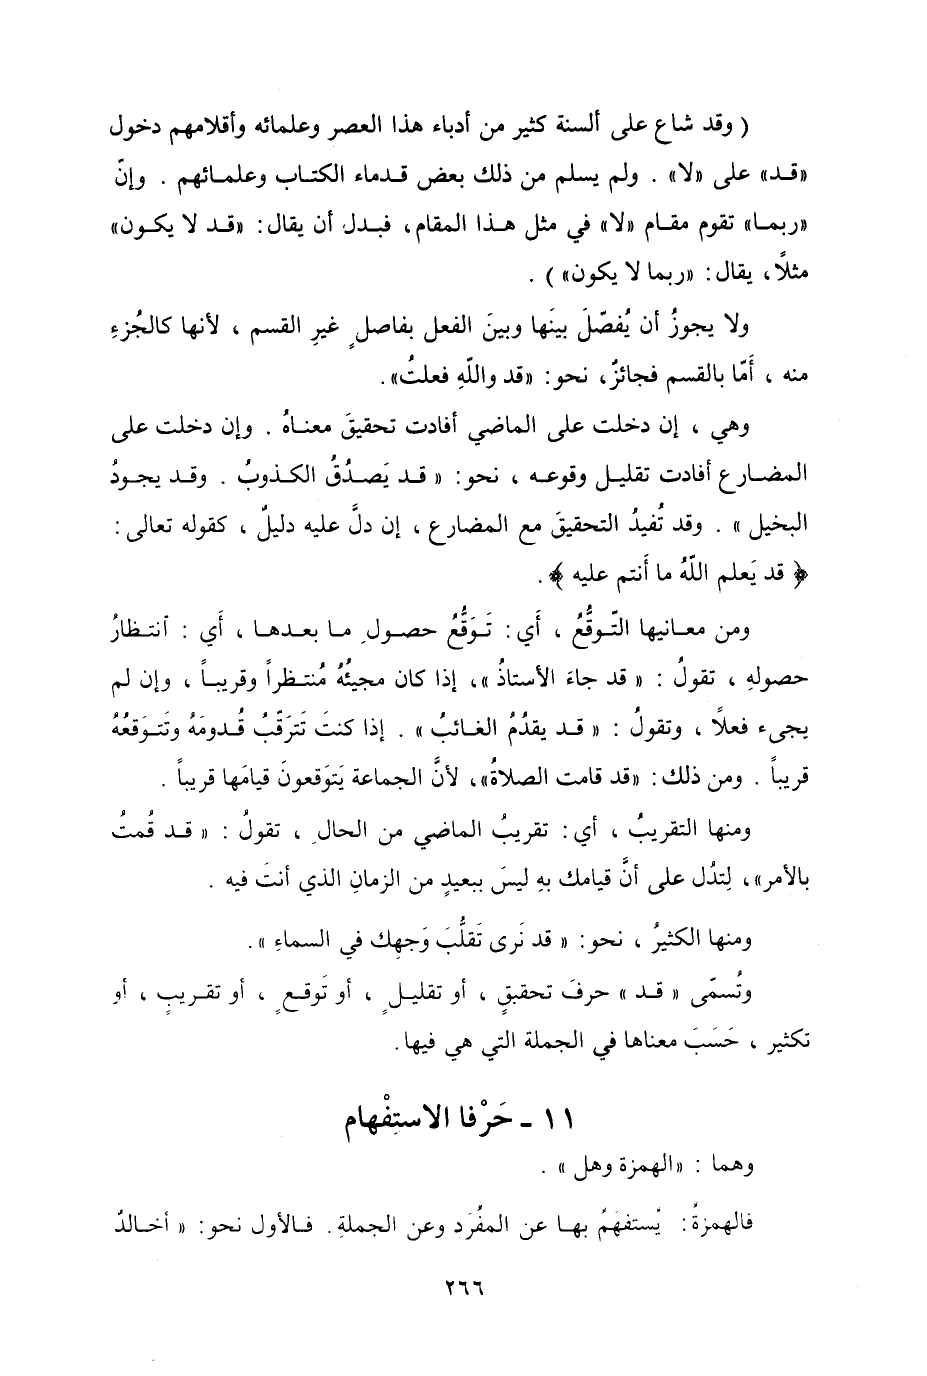 ( وقد شاع على ألسنة كثير من أدباء هذا العصر وعلمائه وأقلامهم دخول
«قـد» على «لا» . ولم يسلم من ذلك بعض قـدماء الكتـاب وعلمـائهم . وإنّ
«ربمـا» تقوم مقـام «لا» في مثل هـذا المقام، فبـدل أن يقال: «قـد لا يكـون»
مثلاً، يقال: «ربما لا يكون» ) .
ولا يجوزُ أن يُفصّلَ بينَها وبينَ الفعل بفاصلٍ غيرِ القسم ، لأنها كالجُزءِ
منه ، أَمّا بالقسم فجائزٌ، نحو: «قد واللّهِ فعلتُ».
وهي ، إن دخلت على الماضي أفادت تحقيقَ معناهُ . وإن دخلت على
المضـارع أفادت تقليـل وقوعـه ، نحو: « قـد يَصـدُقُ الكـذوبُ . وقـد يجـودُ
البخيل » . وقد تُفيدُ التحقيقَ مع المضارع ، إن دلَّ عليه دليلٌ ، كقوله تعالى :
﴿ قد يَعلم اللّهُ ما أَنتم عليه ﴾ .
ومن معـانيها التّـوقُّعُ ، أَي: تَـوَقُّعُ حصـولِ مـا بعـدهـا ، أَي : آنتـظارُ
حصولهِ ، تقولُ : « قد جاءَ الأستاذُ »، إذا كان مجيئُهُ مُنتظراً وقريبـاً ، وإن لم
يجىء فعلاً ، وتقولُ : « قـد يقدُمُ الغـائبُ » . إذا كنتَ تَترَقّبُ قُـدومَهُ وتَتـوَقعُهُ
قريباً . ومن ذلك: «قد قامت الصلاةُ»، لأنَّ الجماعة يَتَوَقعونَ قيامَها قريباً .
ومنها التقريبُ ، أي: تقريبُ الماضي من الحالِ ، تقولُ : « قـد قُمتُ
بالأمر»، لِتدُل على أنَّ قيامك بهِ ليسَ ببعيدٍ من الزمانِ الذي أنتَ فيه .
ومنها الكثيرُ ، نحو: « قد نَرى تَقلُّبَ وَجهِك في السماءِ ».
وتُسمّى « قـد » حرفَ تحقيقٍ ، أو تقليـلٍ ، أو تَوقـعٍ ، أو تقـريبٍ ، أو
تكثير ، حَسَبَ معناها في الجملة التي هي فيها.
١١ - حَرْفا الاستِفْهام
وهما : «الهمزة وهل » .
فالهمزةُ: يُستفهَمُ بهـا عن المفُرَد وعن الجملةِ. فـالأول نحو: « أخـالدٌ
٢٦٦